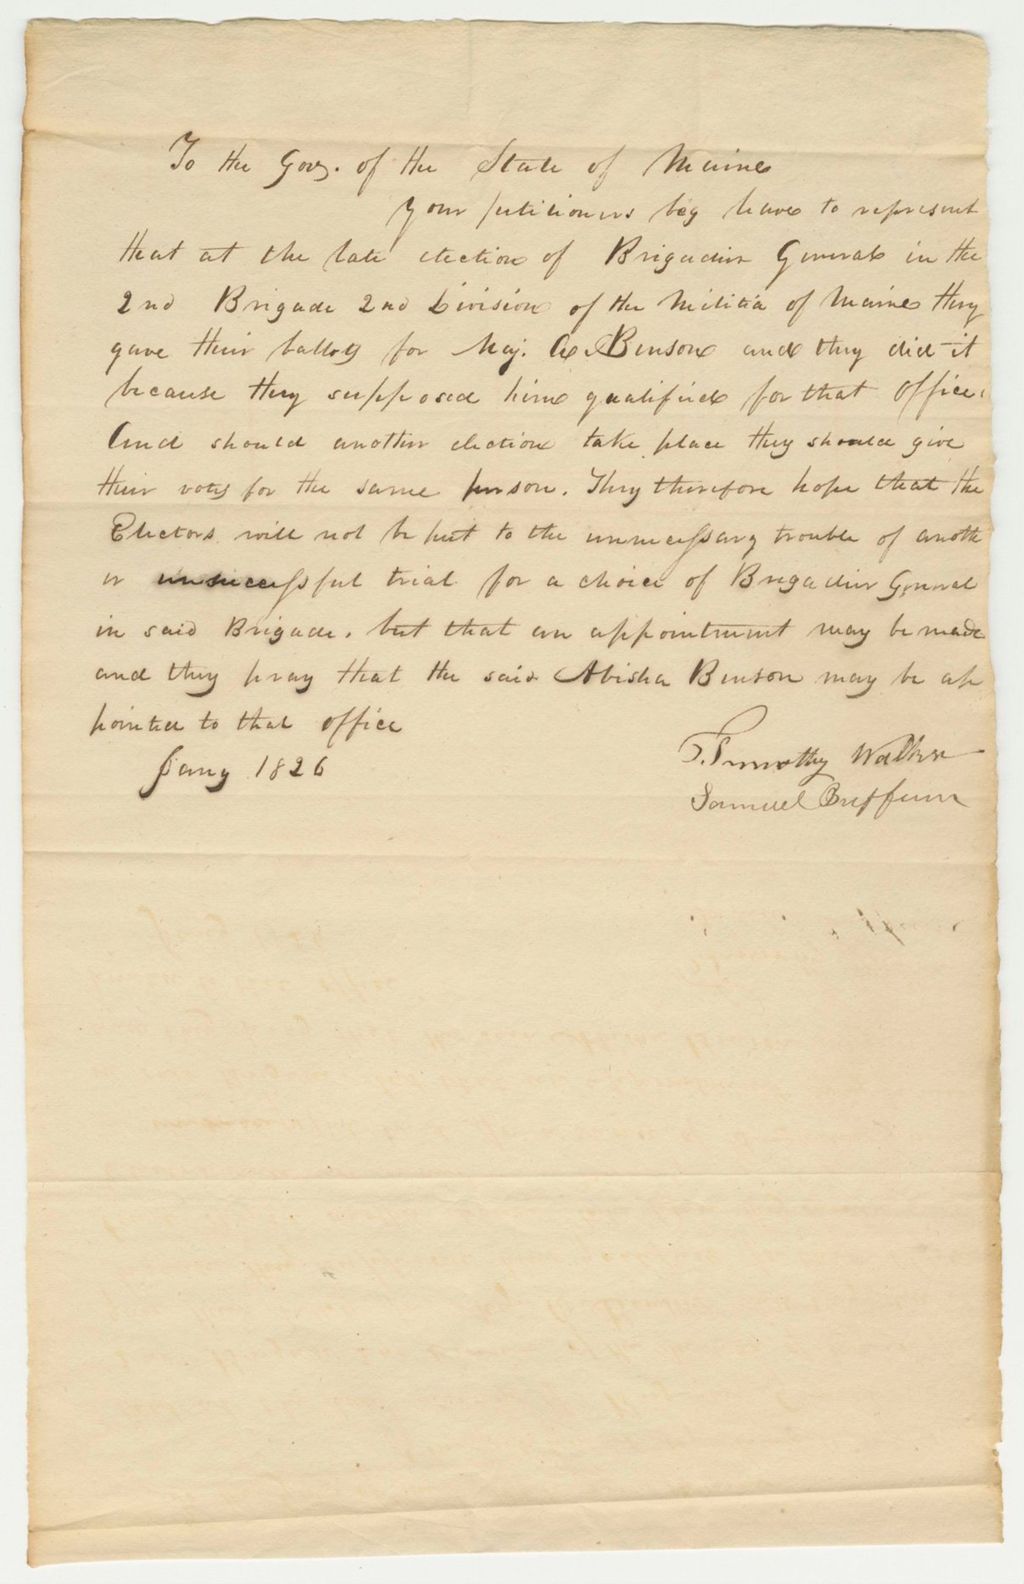 To the Gov. of the State of Maine
Your petitioners beg leave to represent
that at the late election of Brigadier General in the
2nd Brigade 2nd Division of the Militia of Maine they
gave their ballots for Maj. A. Benson and they did it
because they supposed him qualified for that office.
And should another election take place they should give
their votes for the same person. They therefore hope that the
Electors will not be put to the unnecessary trouble of anoth
er unsuccessful trial for a choice of Brigadier General
in said Brigade. but that an appointment may be made
and they pray that the said Abisha Benson may be ap
pointed to that office
Jany 1826
Timothy Walker
Samuel Buffum